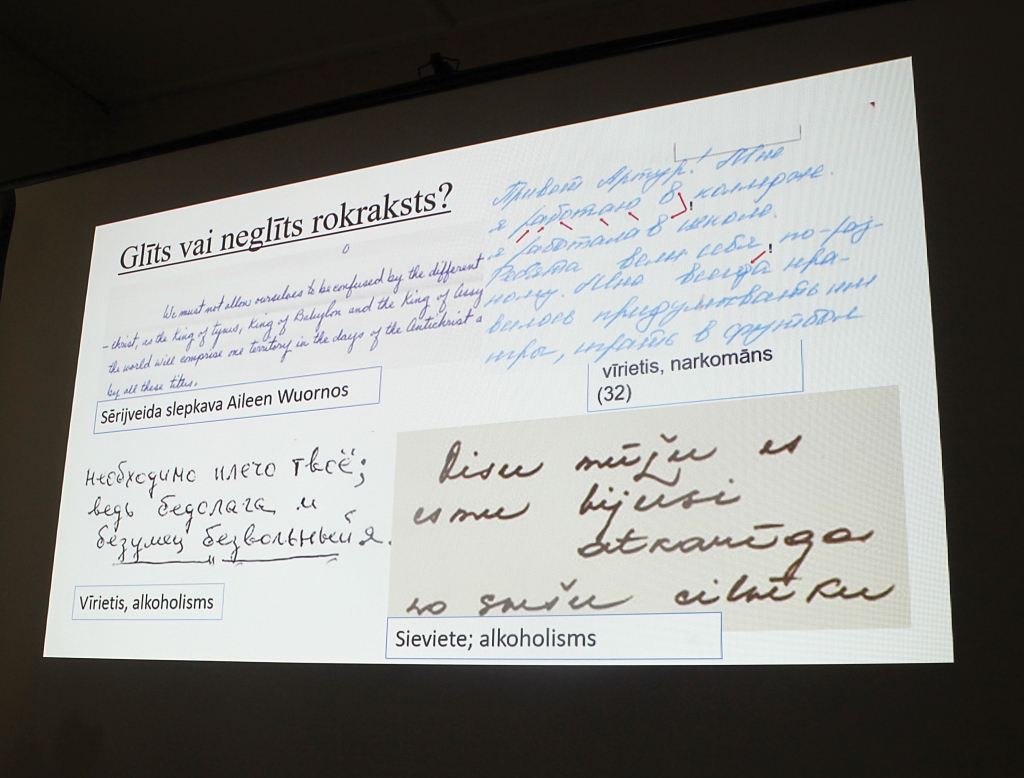 Glīts vai neglīts rokraksts?
We must not allow ourselves to be confused by the different
- christ, as the King of tyrus, King of Babylon and the King of Assy
the world will comprise one territory in the days of the Antichrist a
by all these titles.
Sērijveida slepkava Aileen Wuornos
Привет Артур! Мне
я работаю в
!
я работала в школе.
Ребята вели себя по-раз
!
ному. Мне всегда нра-
вилось придумывать им
игры, играть в футбол
vīrietis, narkomāns
(32)
необходимо плечо твоё;
ведь бедолага и
безумец безвольный я.
Vīrietis, alkoholisms
Visu mūžu es
esmu bijusi
atkarīga
no savu cilvēku
Sieviete; alkoholisms